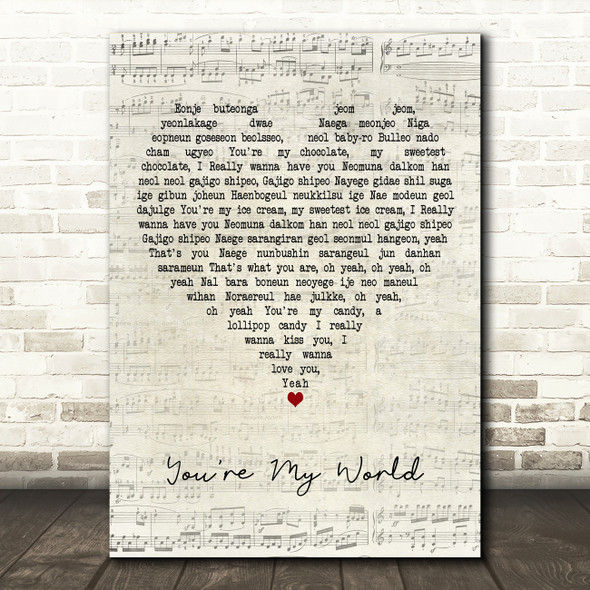 Eonje buteonga jeom jeom,
yeonlakage dwae Naega meonjeo Niga
eopneun goseseon beolsseo, neol baby-ro Bulleo nado
cham ugyeo You're my chocolate, my sweetest
chocolate, I Really wanna have you Neomuna dalkom han
neol neol gajigo shipeo, Gajigo shipeo Nayege gidae shil suga
ige gibun joheun Haenbogeul neukkilsu ige Nae modeun geol
dajulge You're my ice cream, my sweetest ice cream, I Really
wanna have you Neomuna dalkom han neol neol gajigo shipeo
Gajigo shipeo Naege sarangiran geol seonmul hangeon, yeah
That's you Naege nunbushin sarangeul jun danhan
sarameun That's what you are, oh yeah, oh yeah, oh
yeah Nal bara boneun neoyege ije neo maneul
wihan Noraereul hae julkke, oh yeah,
oh yeah You're my candy, a
lollipop candy I really
wanna kiss you, I
really wanna
love you,
Yeah
You're My World